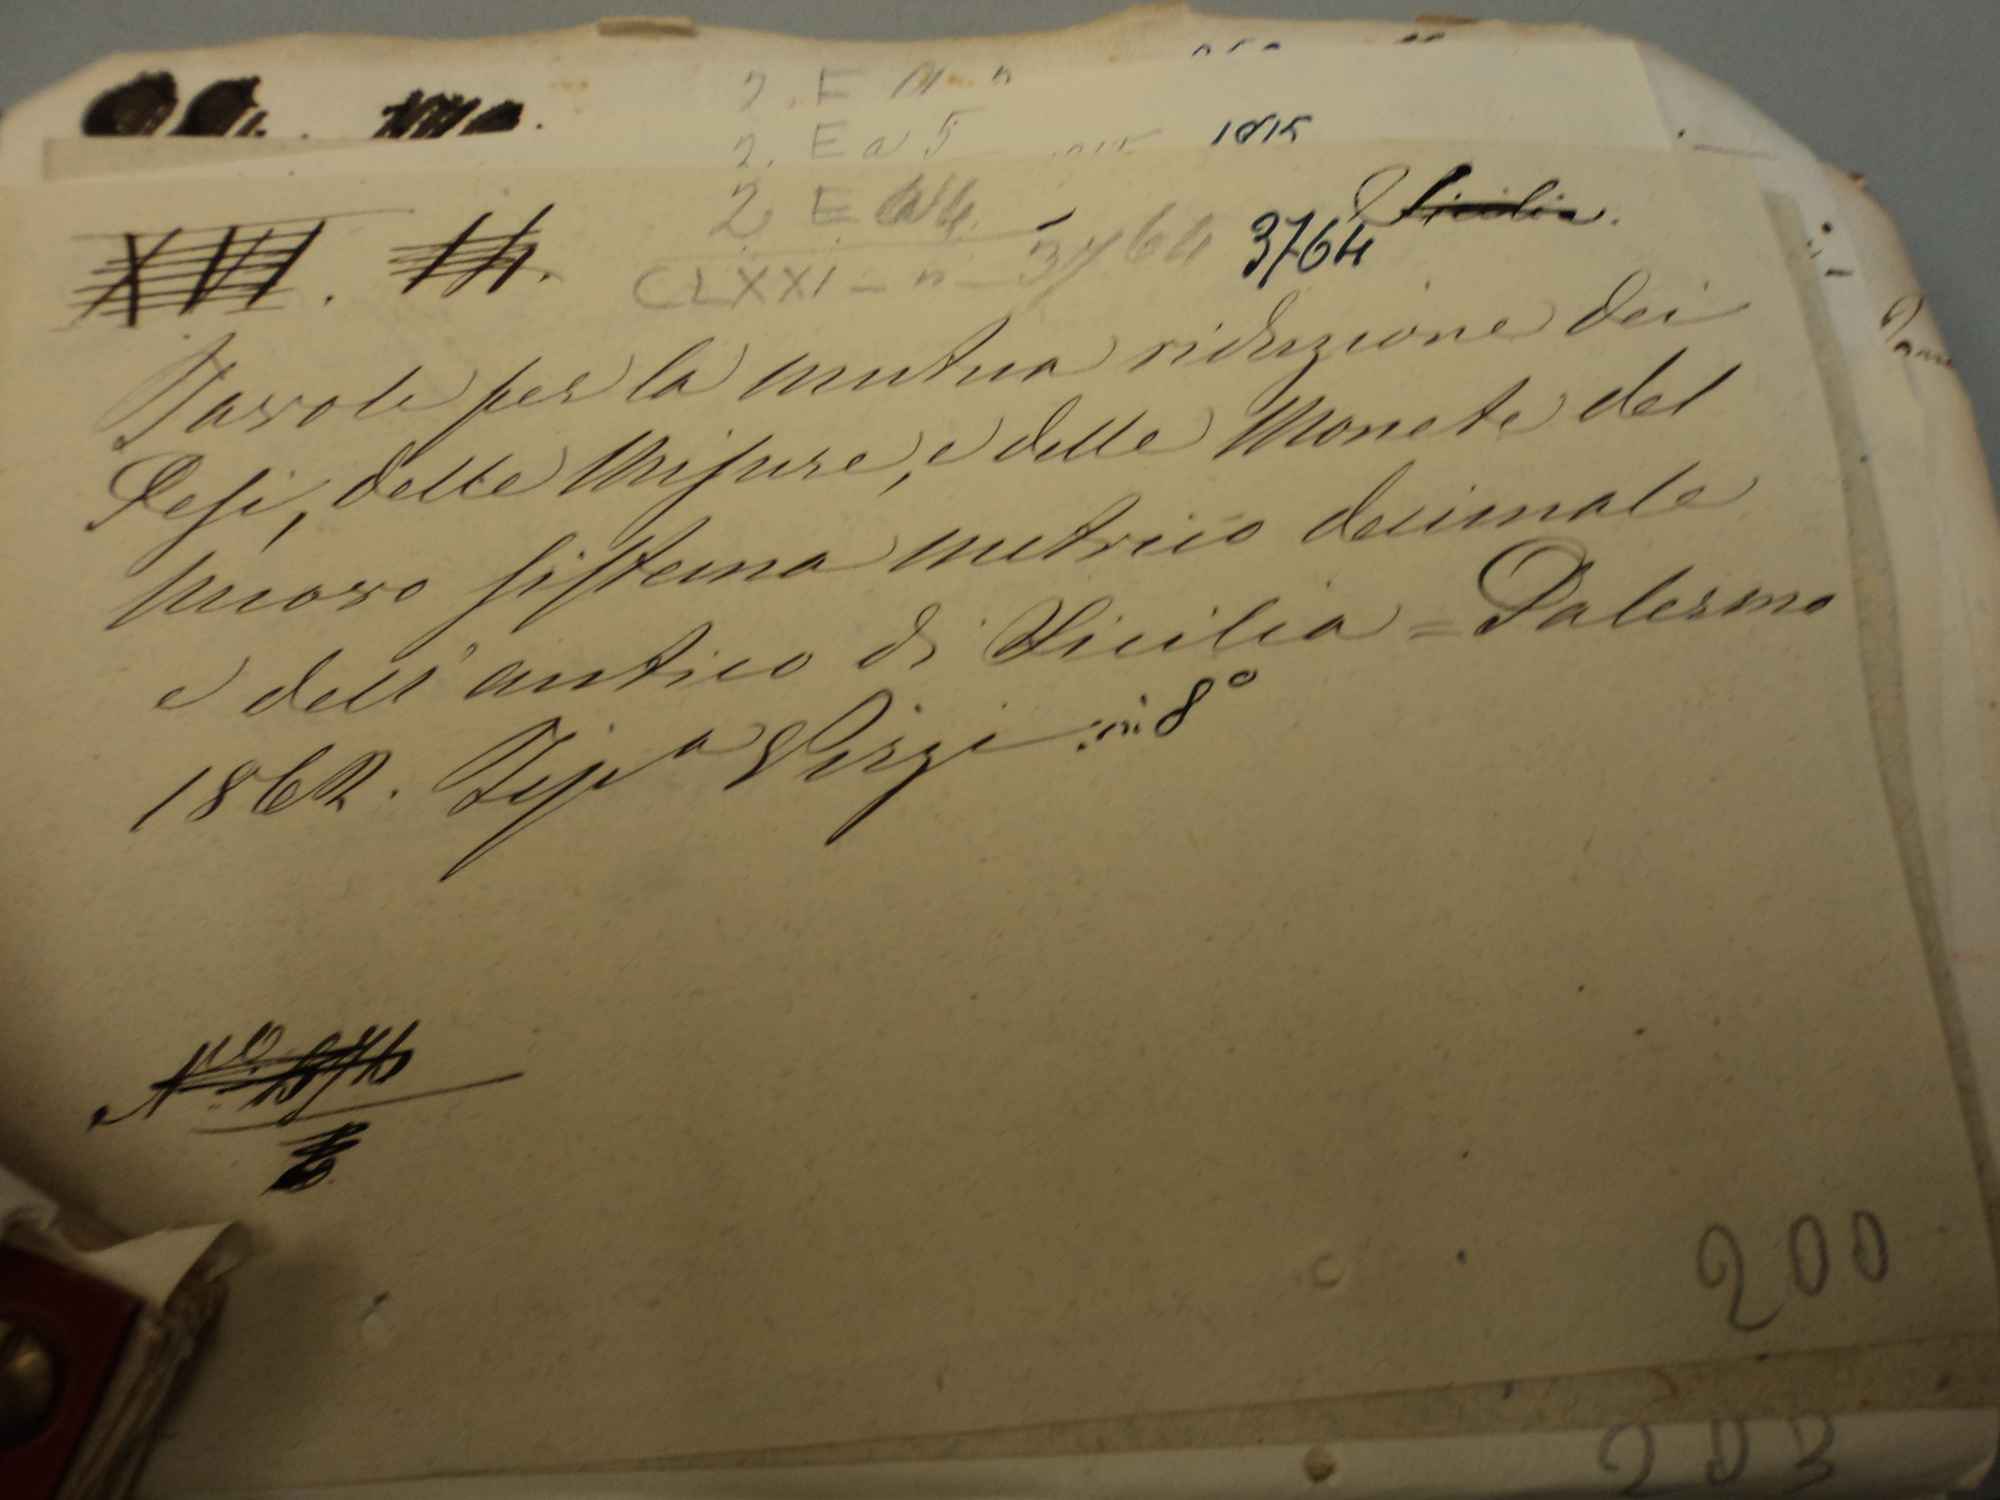 2. E
2. E a 5
1815
2 E a 4
XVI. 14.
CLXXI - n - 3764
3764
Sicilia.
Tavole per la mutua riduzione dei
Pesi, delle Misure, e delle Monete del
nuovo sistema metrico decimale
e dell'antico di Sicilia = Palermo
1862. Tip.a Virzi in 8°
200
203